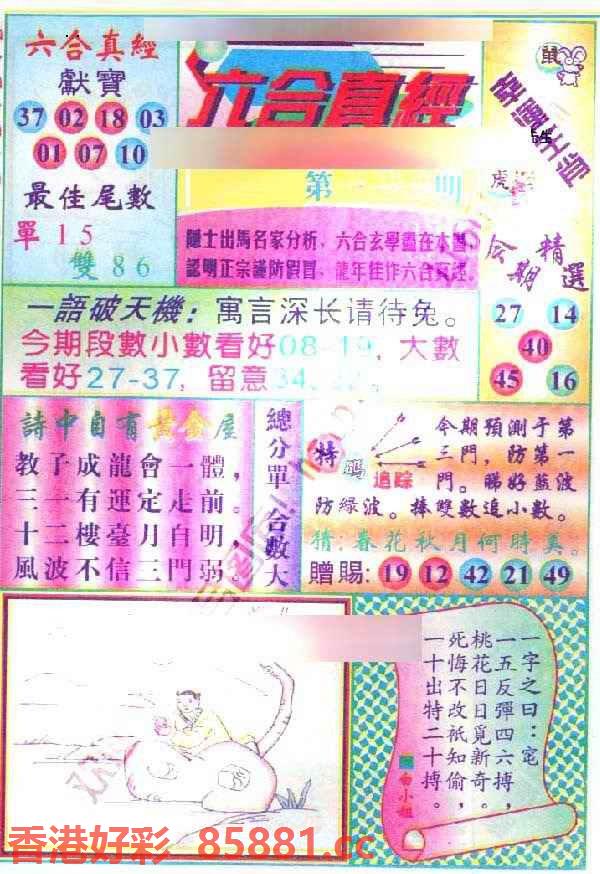 六合真經
獻寶
37 02 18 03
01 07 10
最佳尾數
單 1 5
雙 8 6
六合真經
第 期
隱士出馬名家分析，六合玄學盡在本圖，
認明正宗謹防假冒，龍年佳作六合真經。
鼠
幸運生肖
虎
今期精選
27 14
40
45 16
一語破天機：寓言深长请待兔。
今期段數小數看好08-19，大數
看好27-37，留意34、
詩中自有黃金屋
教子成龍會一體，
三一有運定走前。
十二樓臺月自明，
風波不信三門弱。
總分單 合數大
特碼
追踪
今期預測于第
三門，防第一
門。睇好藍波
防綠波。捧雙數追小數。
猜：春花秋月何時莫。
贈賜：19 12 42 21 49
一字之曰：宅
一五反彈四六搏，
桃花日日覓新奇。
死悔不改祇知偷，
一十出特二十搏。
白小姐
香港好彩 85881.cc